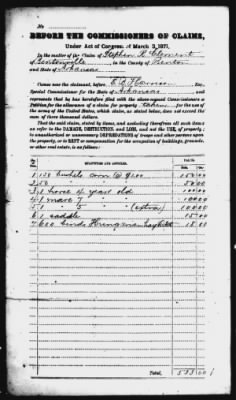 BEFORE THE COMMISSIONERS OF CLAIMS,
Under Act of Congress of March 3, 1871.
In the matter of the Claim of Stephen R. Clement
of Bentonville in the County of Benton
and State of Arkansas
Comes now the claimant, before E. D. Harrison Esq.,
Special Commissioner for the State of Arkansas and
represents that he has heretofore filed with the above-named Commissioners a
Petition for the allowance of a claim for property taken for the use of
the army of the United States, which claim, as stated, does not exceed the
sum of three thousand dollars.
That the said claim, stated by items, and excluding therefrom all such items
as refer to the DAMAGE, DESTRUCTION, and LOSS, and not the USE, of property;
to unauthorized or unnecessary DEPREDATIONS by troops and other persons upon
property, or to RENT or compensation for the occupation of buildings, grounds,
or other real estate, is as follows:
QUANTITIES AND ARTICLES.
1 150 bushels corn
2 50 50 00
3 1 horse 4 year old 100 00
4 1 mare 7 100 00
5 1 " 5 " (extra) 100 00
6 1 saddle 15 00
7 600 binds Hungarian 18 00
Total, 533 00